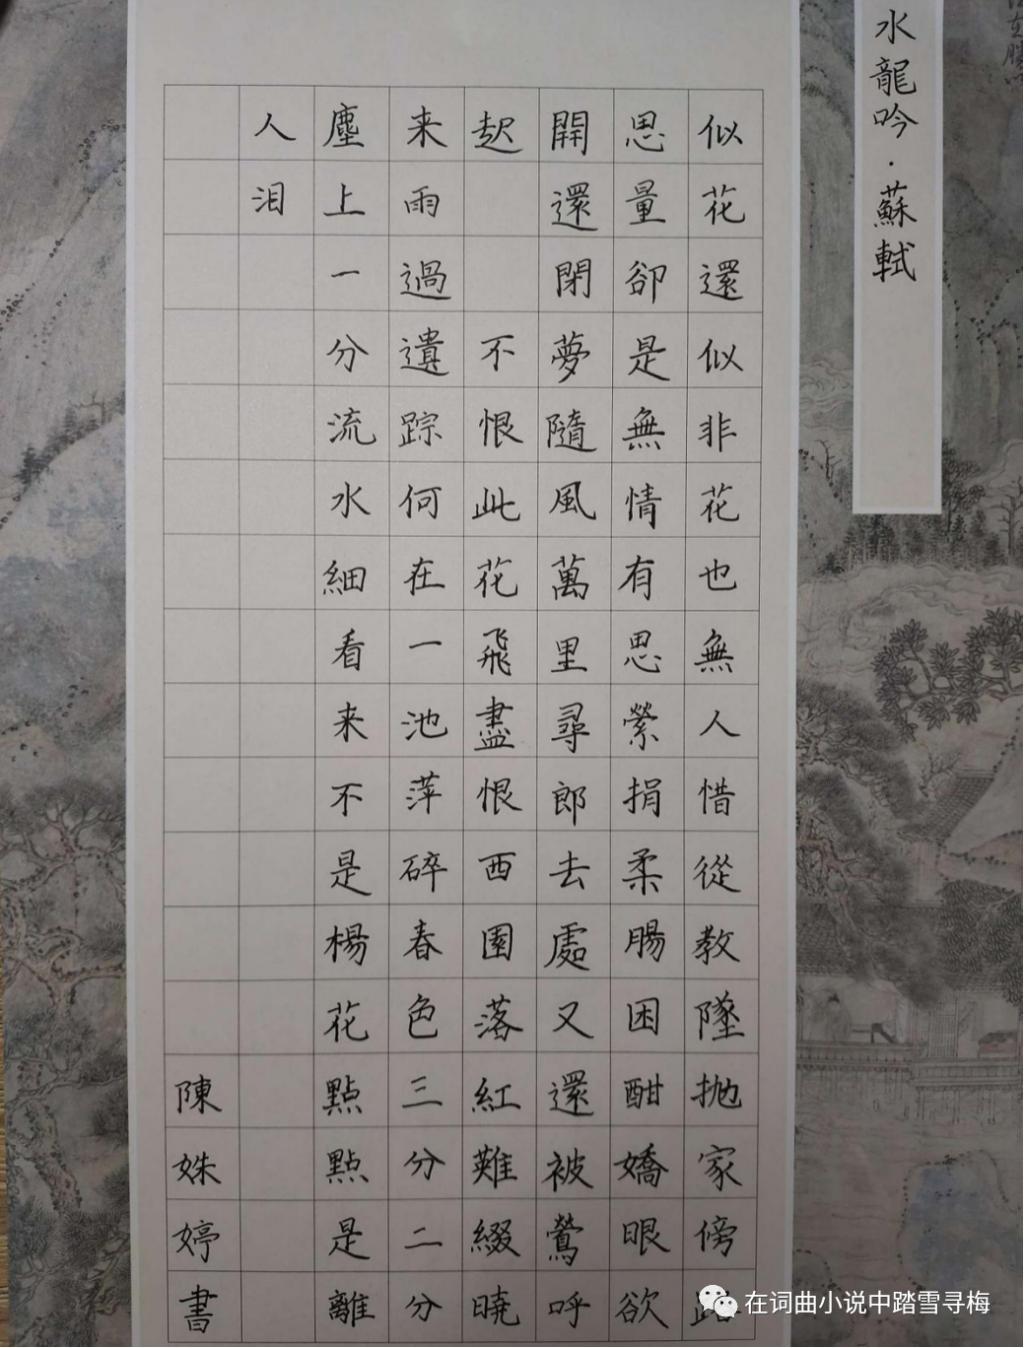 水龍吟·蘇軾
似花還似非花也無人惜從教墜抛家傍路
思量卻是無情有思縈捐柔腸困酣嬌眼欲
開還閉夢隨風萬里尋郎去處又還被鶯呼
起 不恨此花飛盡恨西園落紅難綴曉
来雨過遺踪何在一池萍碎春色三分二分
塵上一分流水細看来不是楊花點點是離
人泪
陳姝婷書
在词曲小说中踏雪寻梅